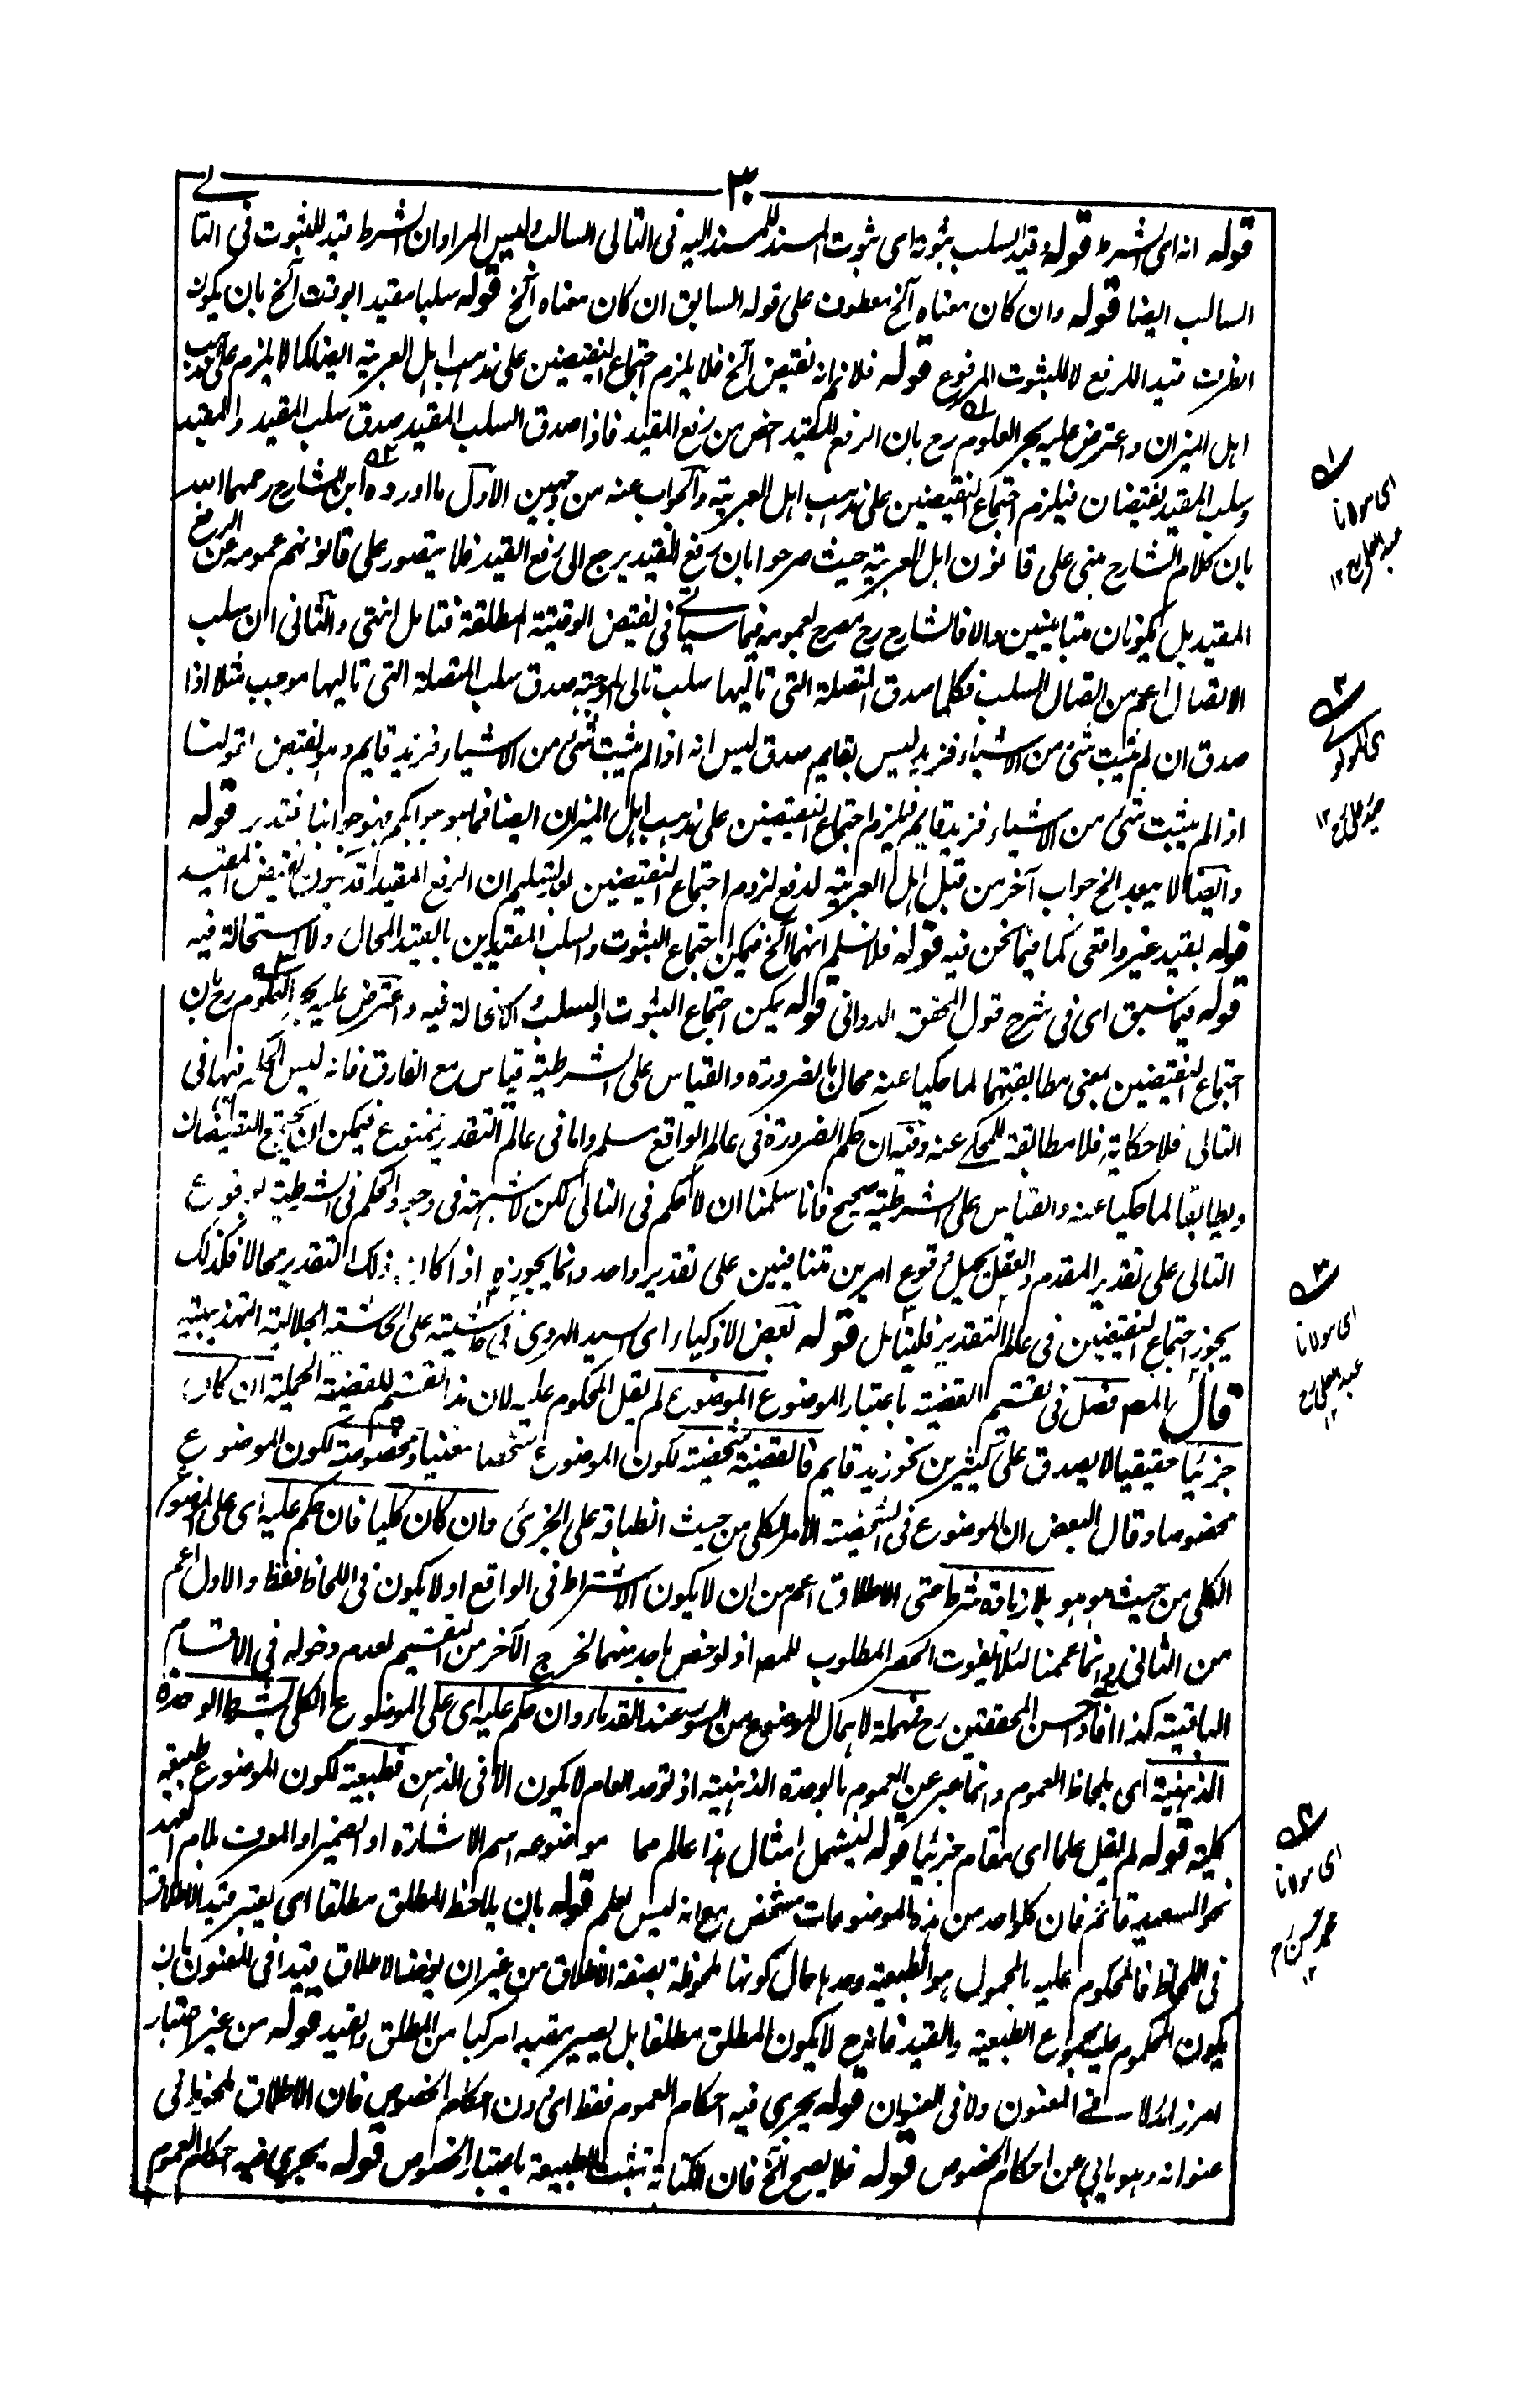 ٣٠
قوله انه اى الشرط قوله وقيد السلب بثبوته اى ثبوت المسند للمسند اليه فى التالى السالب وليس المراد ان الشرط قيد للثبوت فى التا لے
السالب ايضا قوله وان كان معناه آلخ معطوف على قوله السابق ان كان معناه آلخ قوله سلبا مقيدا بوقت آلخ بان يكون
الظرف قيدا للرفع لا للثبوت المرفوع قوله فلا نم انه نقيض آلخ فلا يلزم اجتماع النقيضين على مذهب اهل العربية ايضا كما لا يلزم على مذهب
اهل الميزان واعترض عليه بحر العلوم رح بان الرفع المقيد اخص من رفع المقيد فاذا صدق السلب المقيد صدق سلب المقيد والمقيد
وسلب المقيد نقيضان فيلزم اجتماع النقيضين على مذهب اهل العربية والجواب عنه من وجهين الاول ما اورده ابن الشارح رحمهما الله
بان كلام الشارح مبنى على قانون اهل العربية حيث صرحوا بان رفع المقيد يرجع الى رفع القيد فلا يتصور على قانونهم عمومه عن الرفع
المقيد بل يكونان متباينين والا فالشارح رح مصرح بعمومه فيما سياتے فى نقيض الوقتية المطلقة فتامل انتهى والثانى ان سلب
الاتصال اعم من اتصال السلب فكلما صدق المتصلة التى تاليها سلب تالى الموجبة صدق سلب المتصلة التى تاليها موجب مثلا اذا
صدق ان لم يثبت شئ من الاشياء فزيد ليس بقايم صدق ليس انه اذا لم يثبت شئ من الاشياء فزيد قايم وهو نقيض لقولنا
اذا لم يثبت شئ من الاشياء فزيد قايم فيلزم اجتماع النقيضين على مذهب اهل الميزان ايضا فما هو جوابكم فهو جوابنا فتدبر قوله
وايضا لا يبعد الخ جواب آخر من قبل اهل العربية لدفع لزوم اجتماع النقيضين بعد تسليم ان الرفع المقيد قد يكون نقيض المقيد
قوله بقيد غير واقعى كما فيما نحن فيه قوله فلا نسلم انهما آلخ فيمكن اجتماع الثبوت والسلب المقيدين بالقيد المحال ولا استحالة فيه
قوله فيما سبق اى فى شرح قول المحقق الدوانى قوله يمكن اجتماع الثبوت والسلب لا استحالة فيه واعترض عليه بحر العلوم رح بان
اجتماع النقيضين بمعنى مطابقتهما لما حكيا عنه محال بالضرورة والقياس على الشرطية قياس مع الفارق فانه ليس الحكم فيها فى
التالى فلا حكاية فلا مطابقة للمحكے عنه وفيه ان حكم الضرورة فى عالم الواقع مسلم واما فى عالم التقدير فممنوع فيمكن ان يجتمع النقيضان
ويطابقا لما حكيا عنه والقياس على الشرطية صحيح فانا سلمنا ان لا حكم فى التالى لكن لا شبهة فى وجود الحكم فى الشرطية بوقوع
التالى على تقدير المقدم والعقل يحيل وقوع امرين متنافيين على تقدير واحد وانما يجوزه اذا كان ذلك التقدير محالا فكذلك
يجوز اجتماع النقيضين فى عالم التقدير فليتأمل قوله بعض الاذكياء اى السيد الهروى فى حاشيته على الحاشية الجلالية التهذيبية
قال المصـ فصل فى تقسيم القضية باعتبار الموضوع الموضوع لم يقل المحكوم عليه لان هذا تقسيم للقضية الحملية ان كان
جزئيا حقيقيا لا يصدق على كثيرين نحو زيد قايم فالقضية شخصية لكون الموضوع شخصا معينا ومخصوصة لكون الموضوع
مخصوصا وقال البعض ان الموضوع فى الشخصية الامر الكلى من حيث انطباقه على الجزئى وان كان كليا فان حكم عليه اى على الموضوع
الكلى من حيث هو هو بلا زيادة شرط حتى الاطلاق اعم من ان لا يكون الاشتراط فى الواقع او لا يكون فى اللحاظ فقط والاول اعم
من الثانى وانما عممنا لئلا يفوت الحصر المطلوب للمصـ اذ لو خص باحدهما لخرج الآخر من التقسيم لعدم دخوله فى الاقسام
الباقية كذا افاد احسن المحققين رح فمهملة لاهمال الموضوع من السور عند القدماء وان حكم عليه اى على الموضوع الكلى بشرط الوحدة
الذهنية اى بلحاظ العموم وانما عبر عن العموم بالوحدة الذهنية اذ توحد العام لا يكون الا فى الذهن فطبيعية لكون الموضوع طبيعة
كلية قوله لم يقل علما اى مقام جزئيا قوله ليشمل امثال هذا عالم مما موضوعه اسم الاشارة او الضمير او المعرف بلام العهد
نحو السعيد قائم فان كلواحد من هذه الموضوعات مشخص مع انه ليس بعلم قوله بان يلاحظ المطلق مطلقا اى يعتبر قيد الاطلاق
فى اللحاظ فالمحكوم عليه بالمحمول هو الطبيعة وحدها حال كونها ملحوظة بصفة الاطلاق من غير ان يوخذ الاطلاق قيدا فى المعنون بان
يكون المحكوم عليه مجموع الطبيعة والقيد فانه ح لا يكون المطلق مطلقا بل يصير مقيدا مركبا من المطلق والقيد قوله من غير اعتبار
امر زائد لا فے المعنون ولا فى العنوان قوله يجرى فيه احكام العموم فقط اى دون احكام الخصوص فان الاطلاق ملحوظ فى
عنوانه وهو يابى عن احكام الخصوص قوله فلا يصح آلخ فان الكتابة تثبت للطبيعة باعتبار الخصوص قوله يجرى فيه احكام العموم
١
اى مولانا
عبد العلى رح ١٢
٢
اى المولوى
حيدر على رح ١٢
٣
اى مولانا
عبد العلى رح
١٢
٤
اى مولانا
محمد حسن رح
١٢